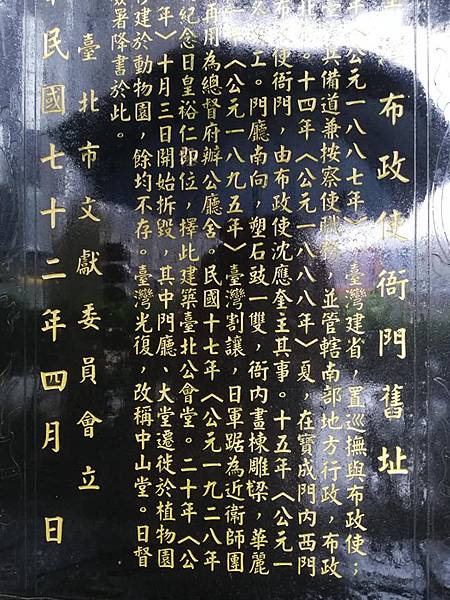 布政使衙門舊址
年〈公元一八八七年〉，臺灣建省，置巡撫與布政使；
兵備道兼按察使職銜，並管轄南部地方行政，布政
。十四年〈公元一八八八年〉夏，在寶成門內西門
布政使衙門，由布政使沈應奎主其事。十五年〈公元一
工。門廳南向，塑石鼓一雙，衙內畫棟雕梁，華麗
年〈公元一八九五年〉臺灣割讓，日軍踞為近衛師團
再用為總督府辦公廳舍。民國十七年〈公元一九二八年
紀念日皇裕仁即位，擇此建築臺北公會堂。二十年〈公
年〉十月三日開始拆毀，其中門廳、大堂遷徙於植物園
移建於動物園，餘均不存。臺灣光復，改稱中山堂。日督
簽署降書於此。
臺北市文獻委員會立
民國七十二年四月 日